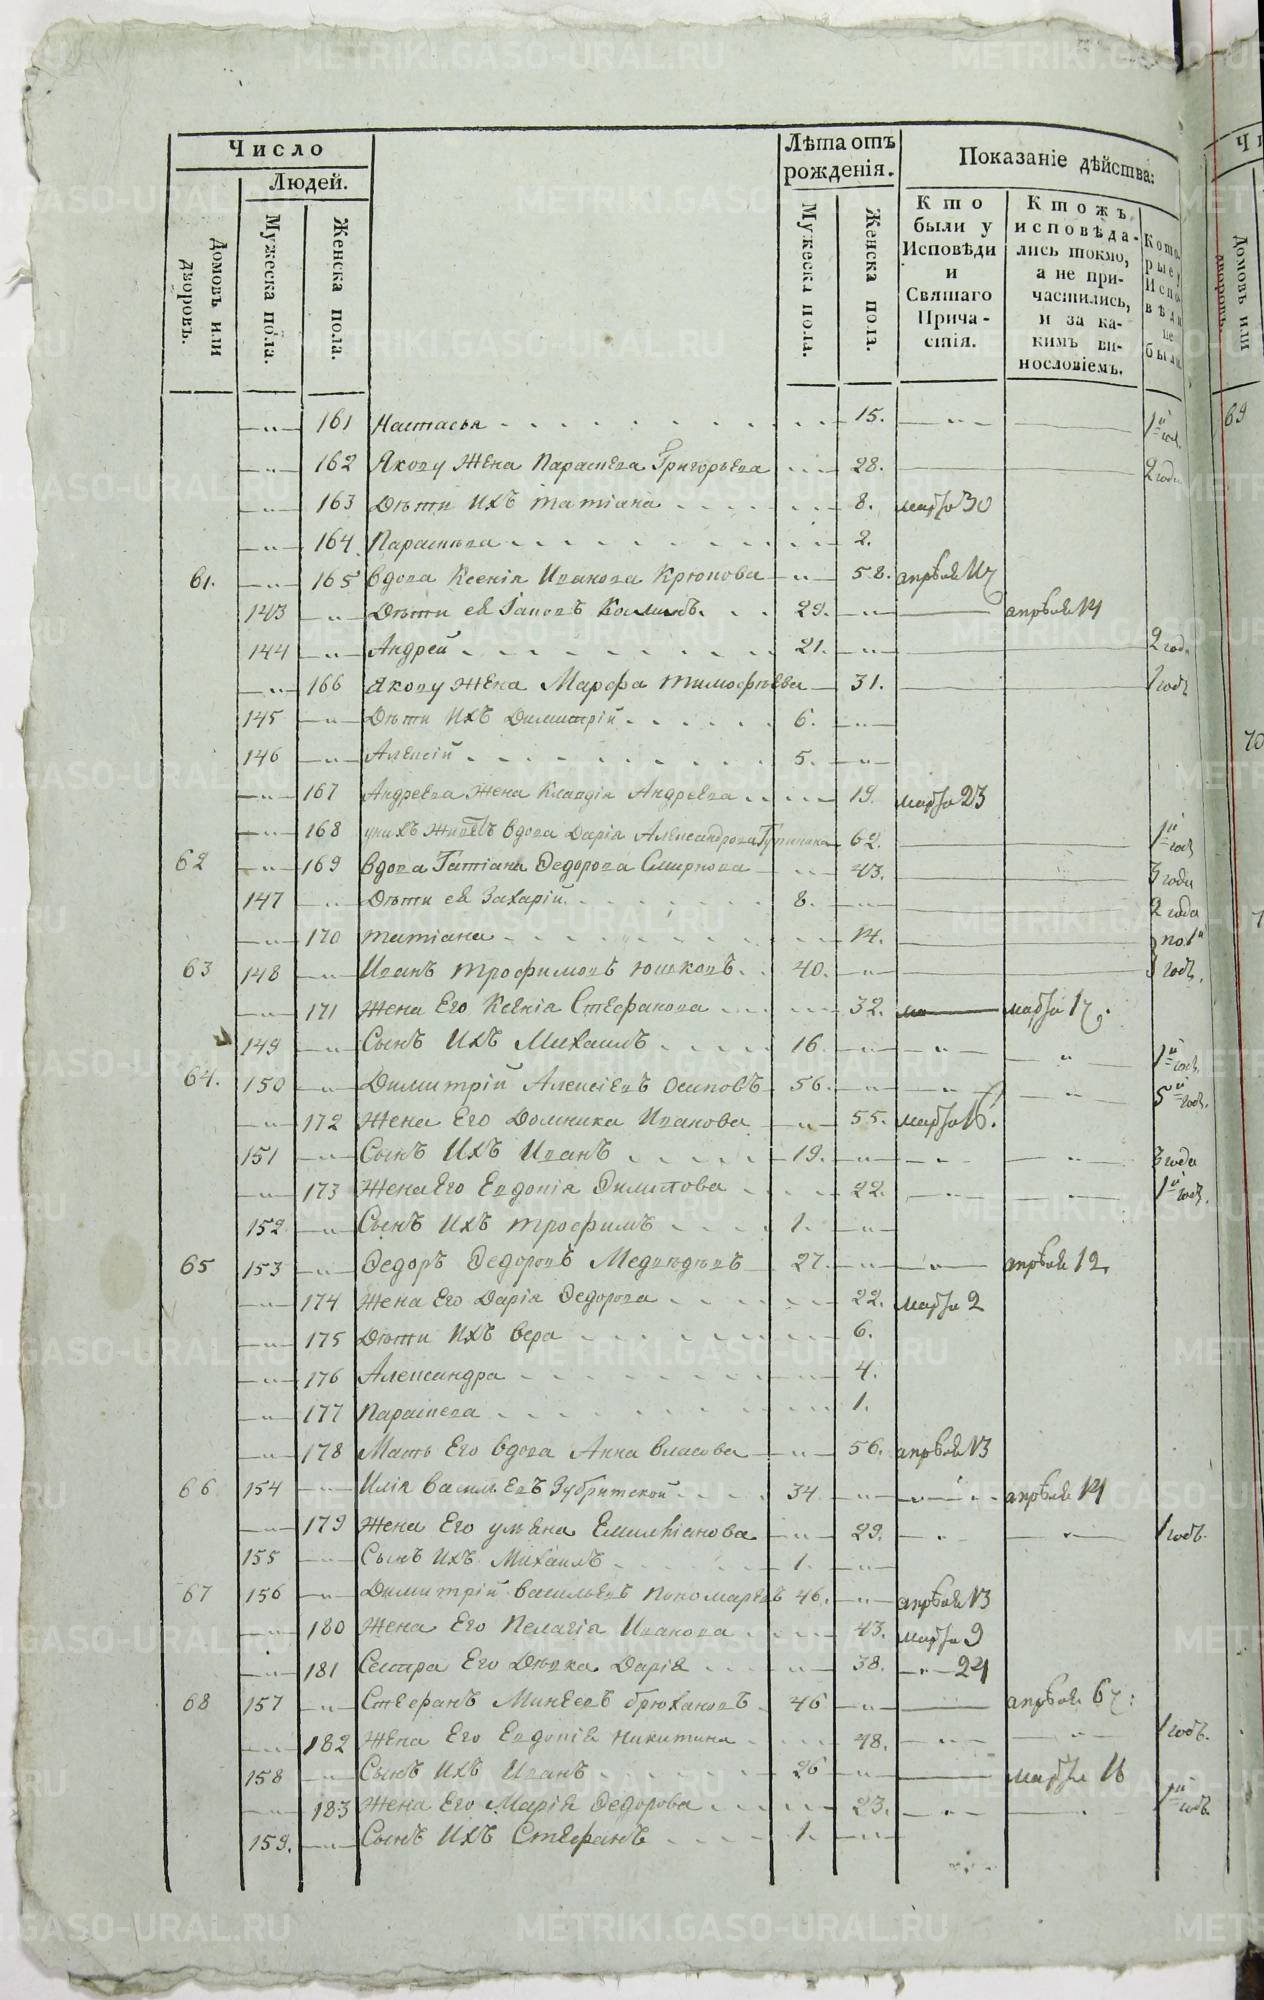 Число
Людей.
Домовъ или дворовъ.
Мужеска пола.
Женска пола.
Лѣта отъ рожденія.
Мужеска пола.
Женска пола.
Показаніе дѣйства:
Кто были у Исповѣди и Святаго Причастія.
Ктожъ исповѣдались токмо, а не причастились, и за какимъ винословіемъ.
Которые Исповѣди не были
161 Настасья 15. 1й годъ
162 Якову жена Параскева Григорьева 28. 2 года
163 Дѣти ихъ Татіана 8. марта 30
164 Параскева 2.
61. 165 Вдова Ксенія Иванова Крюкова 58. апрѣля
143 Дѣти ея Іаковъ Косминъ 29. апрѣля 14
144 Андрей 21. 2 года
166 Якову жена Марфа Тимофѣева 31. 1 годъ
145 Дѣти ихъ Димитрій 6.
146 Алексій 5.
167 Андреева жена Клавдія Андреева 19. марта 23
168 у нихъ живетъ вдова Дарія Александрова 62. 1й годъ
62 169 Вдова Татіана Федорова Смирнова 43. 3 года
147 Дѣти ея Захарій 8. 2 года
170 Татіана 14. по 1й
63 148 Иванъ Трофимовъ Юшковъ 40. годъ.
171 Жена Его Ксенія Стефанова 32. марта 17.
149 Сынъ ихъ Михаилъ 16. 1й годъ.
64. 150 Димитрій Алексіевъ Осиповъ 56. 5й годъ.
172 Жена Его Домника Иванова 55. марта 16.
151 Сынъ ихъ Иванъ 19. 3 года
173 Жена Его Евдокія Филипова 22. 1й годъ.
152 Сынъ ихъ Трофимъ 1.
65 153 Федоръ Федоровъ Медвѣдевъ 27. апрѣля 12
174 Жена Его Дарія Федорова 22. марта 2
175 Дѣти ихъ Вера 6.
176 Александра 4.
177 Параскева 1.
178 Мать Его вдова Анна Власова 56. апрѣля 13
66 154 Илія Васильевъ Зубритской 34 апрѣля 14
179 Жена Его Ульяна Емиліанова 29. 1 годъ.
155 Сынъ ихъ Михаилъ 1.
67 156 Димитрій Васильевъ Пономаревъ 46. апрѣля 13
180 Жена Его Пелагія Иванова 43. марта 9
181 Сестра Его Дѣвка Дарія 38. 24
68 157 Стефанъ Минѣевъ Брюхановъ 46 апрѣля
182 Жена Его Евдокія Никитина 48. 1 годъ.
158 Сынъ ихъ Иванъ 26 марта 16
183 Жена Его Марія Федорова 23. 1й годъ
159. Сынъ ихъ Стефанъ 1.
69
70
METRIKI.GASO-URAL.RU